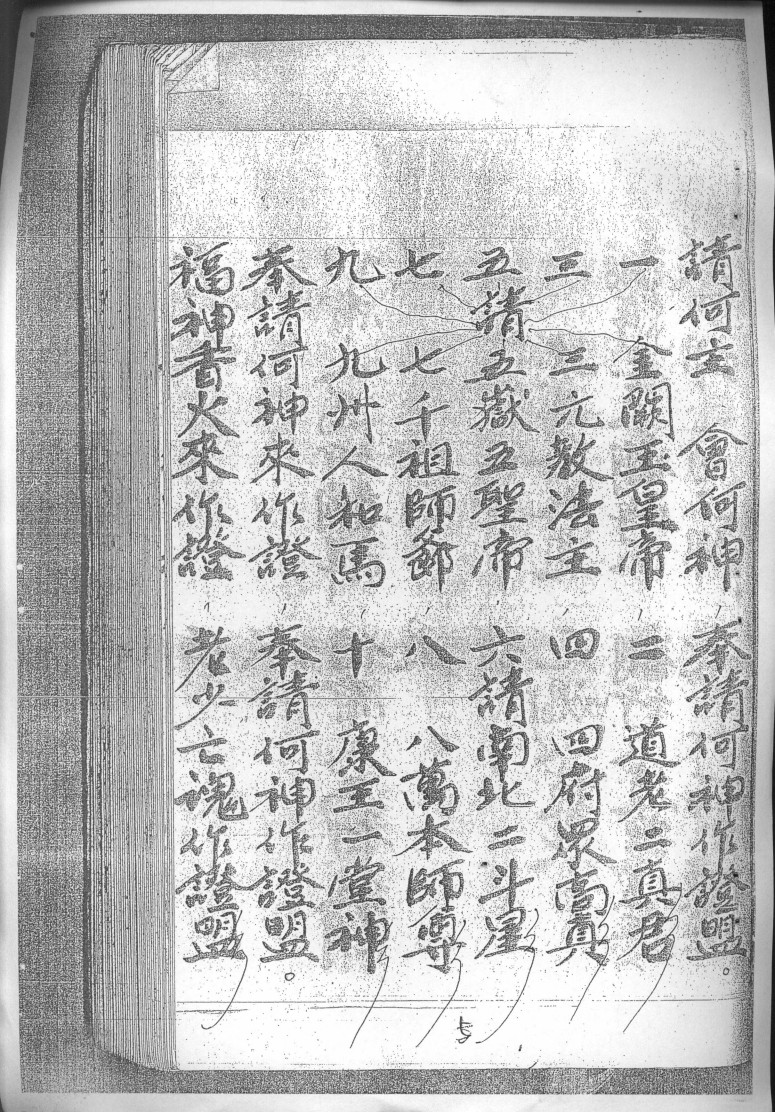 請何主 會何神 奉請何神作證盟。
一 金闕玉皇帝 二 道老二真君
三 三元教法主 四 四府眾高真
五請五嶽五聖帝 六請南北二斗星
七 七千祖師爺 八 八萬本師尊
九 九州人和馬 十 康王一堂神
奉請何神來作證 奉請何神作證盟。
福神香火來作證 老少亡魂作證盟